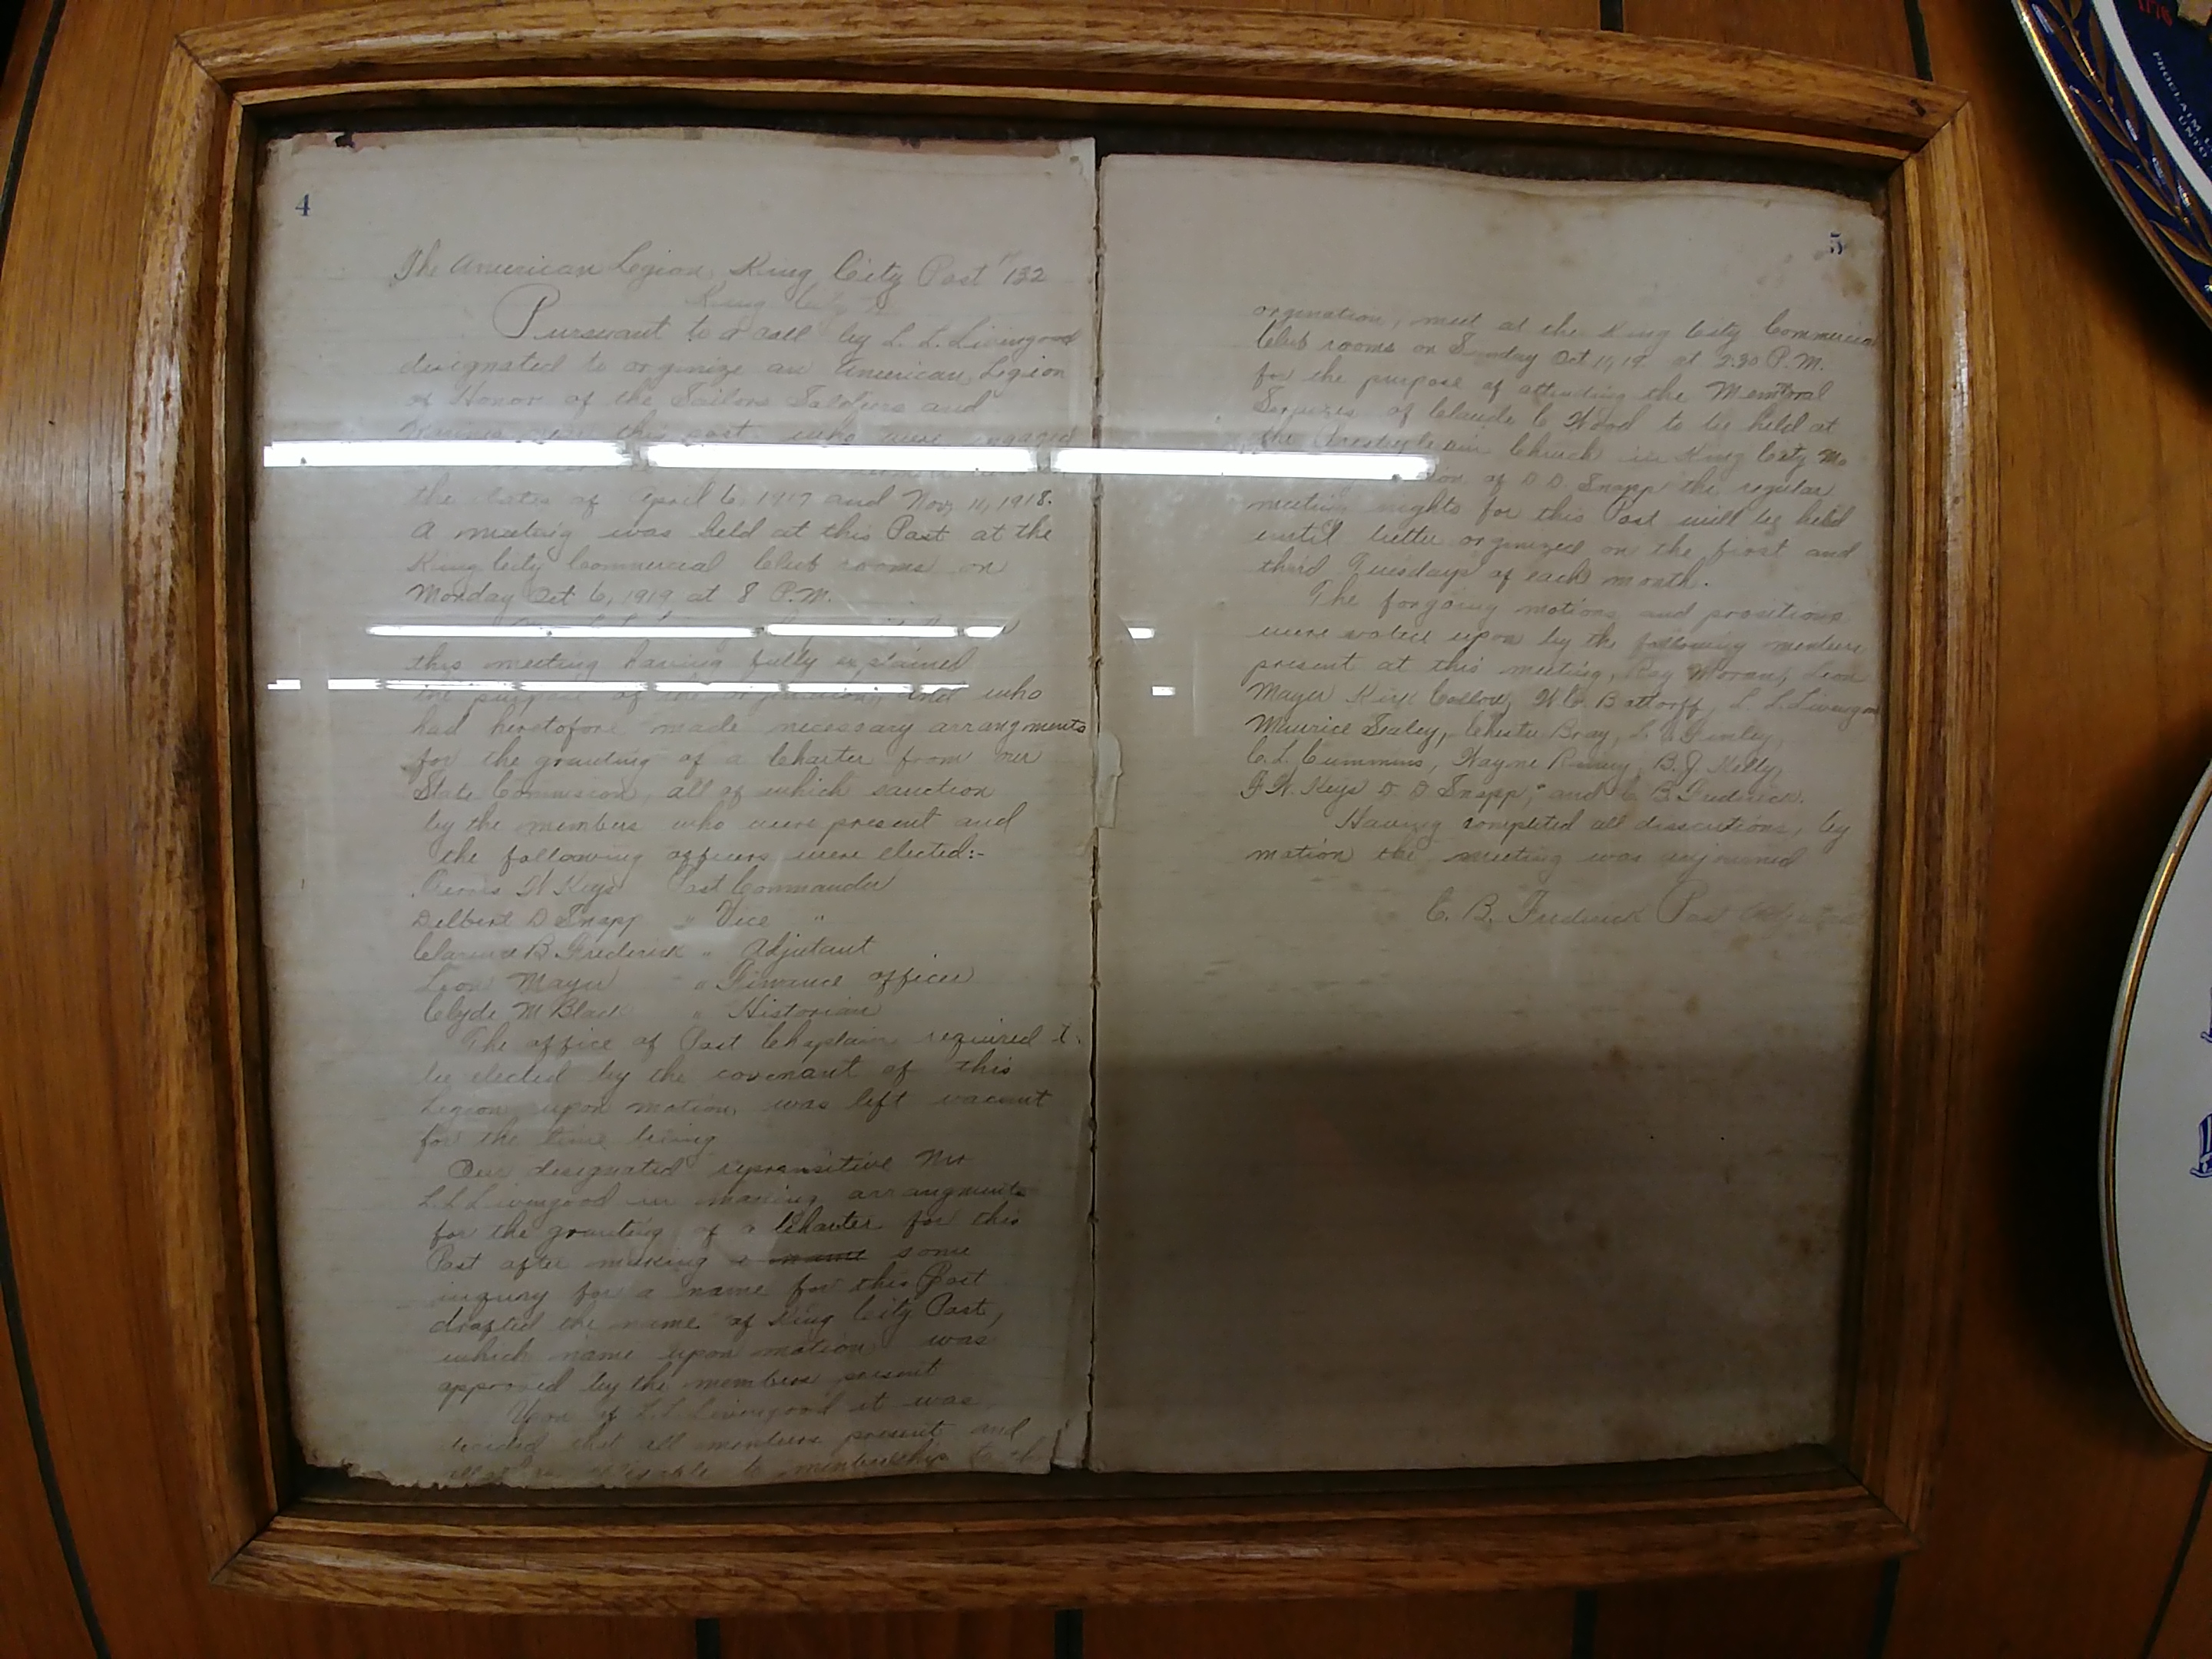 4
The American Legion, King City Post # 132
King City
Pursuant to a call by L. L. Livingood
designated to organize an American Legion
of Honor of the Sailors Soldiers and
this post who were engaged
the dates of April 6, 1917 and Nov, 11, 1918.
A meeting was held at this Post at the
King City Commercial Club rooms on
Monday Oct 6, 1919 at 8 P.M.
this meeting having fully explained
the purpose of the and who
had heretofore made necessary arrangments
for the granting of a Charter from our
State Commision, all of which sanction
by the members who were present and
the following officers were elected:-
W Keys Post Commander
Delbert D Snapp " Vice "
Clarence B. Frederick " Adjutant
Leon Mayer " Finance officer
Clyde M Black " Historian
The office of Post Chaplain required t
be elected by the covenant of this
Legion upon motion, was left vacant
for the time being
Our designated represnsitive Mr
L. L Livingood in making arrangments
for the granting of a Charter for this
Post after making a name some
inqury for a name for this Post
drafted the name of King City Post,
which name upon motion was
approved by the members present
Upon of L. L. Livingood it was
decided that all members present and
to membership to th
5
orgination, meet at the King City Commercial
Club rooms on Sunday Oct 11, 19 at 2:30 P.M.
for the purpose of attending the Memoral
Services of Claude C Wood to be held at
the Church in King City Mo
of D D. Snapp the regular
meeting nights for this Post will be held
until better orginized on the first and
third Tuesdays of each month.
The forgoing motions and prositions
were voted upon by the following members
present at this meeting, Ray Moran, Leon
Mayer Kirk W. G. Battorff, L. L. Livingood
Maurice Sealey, Chester Bray, L. Finley,
C. L. Cummins, Wayne B. J. Kelly,
W. Keys D. D Snapp, and C. B. Frederick.
Having completed all disscutions, by
motion the meeting was
C. B. Frederick Post Adjutant
PROCLAIM L
UNTO